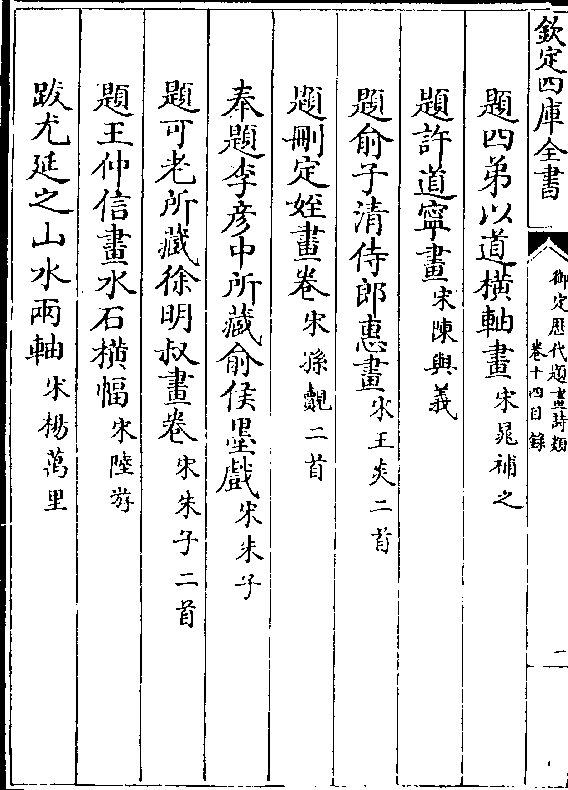 欽定四庫全書
御定歷代題畫詩類
卷十四目錄
二
題四弟以道横軸畫宋晁補之
題許道寧畫宋陳與義
題俞子清侍郎惠畫宋王炎二首
題刪定姪畫卷宋孫覿二首
奉題李彦中所藏俞侯墨戲宋朱子
題可老所藏徐明叔畫卷宋朱子二首
題王仲信畫水石横幅宋陸游
跋尤延之山水兩軸宋楊萬里